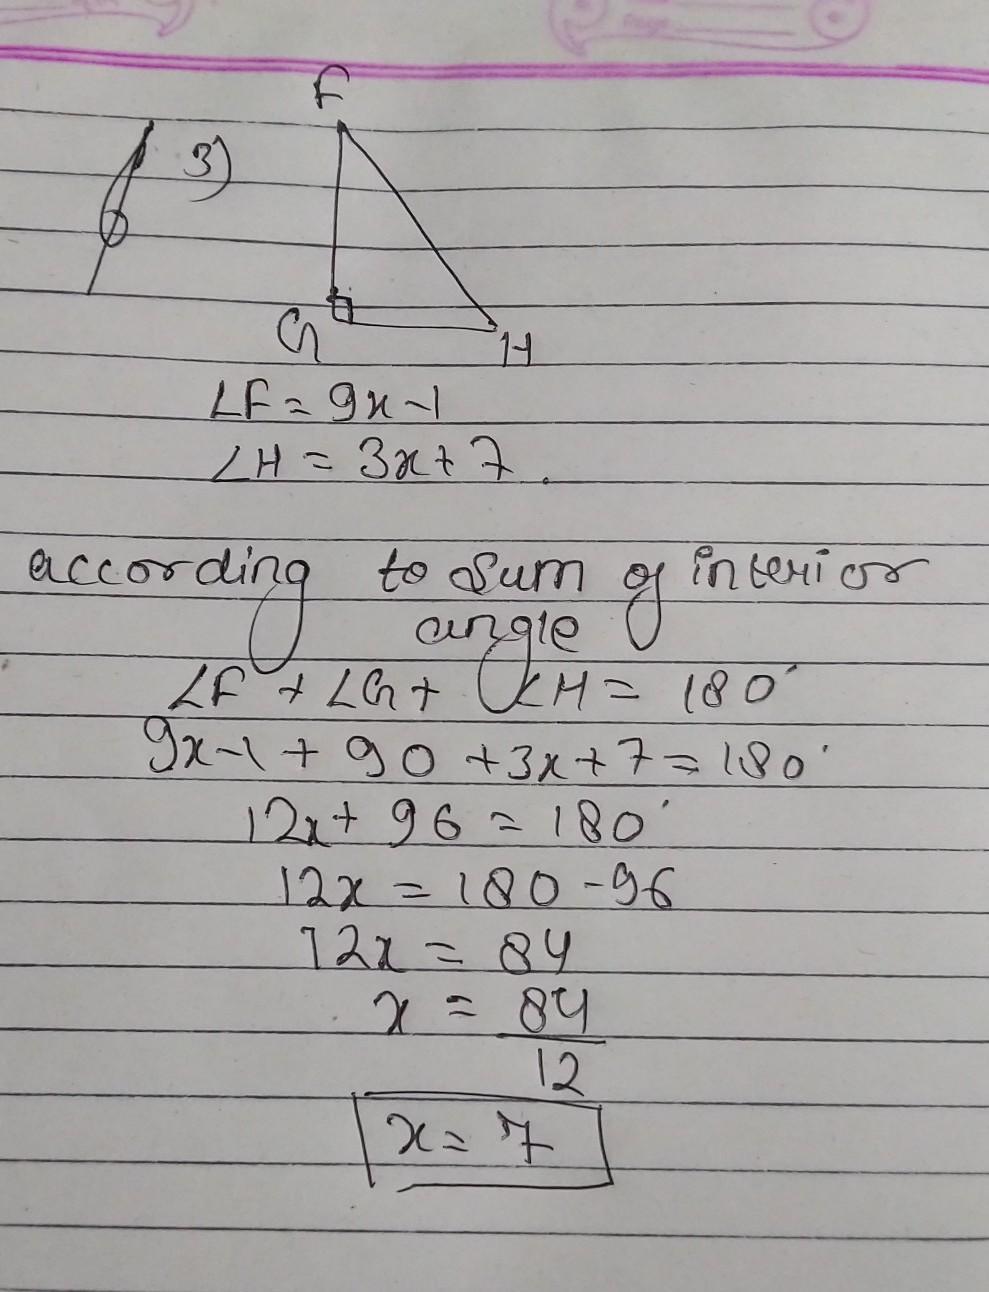 3)
F
G
H
∠F = 9x-1
∠H = 3x+7.
according to sum of interior
angle
∠F + ∠G + ∠H = 180°
9x-1 + 90 + 3x + 7 = 180°
12x + 96 = 180°
12x = 180 - 96
12x = 84
x = 84
12
x = 7